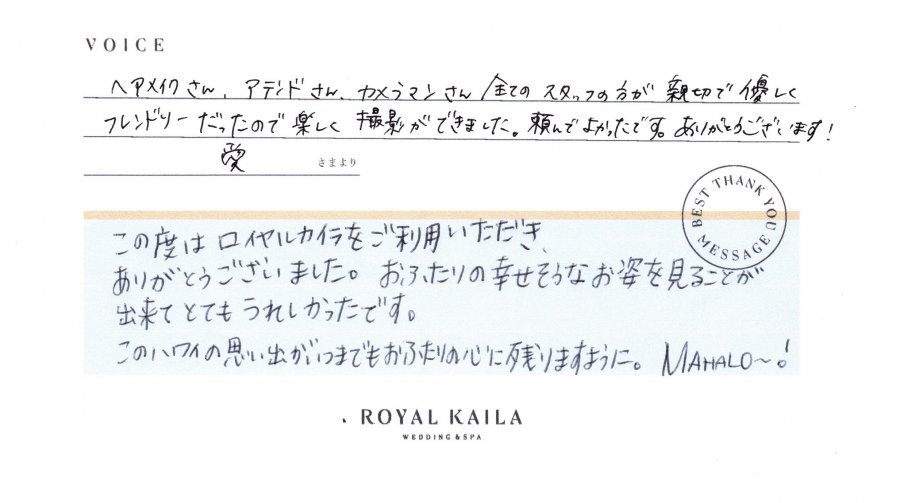 VOICE
ヘアメイクさん、アテンドさん、カメラマンさん 全ての スタッフの方が 親切で 優しく
フレンドリーだったので楽しく 撮影ができました。頼んでよかったです。ありがとうございます!
愛 さまより
BEST THANK YOU MESSAGE
この度は ロイヤルカイラをご利用いただき、
ありがとうございました。おふたりの幸せそうなお姿を見ることが
出来てとてもうれしかったです。
このハワイの思い出がいつまでもおふたりの心に残りますように。 MAHALO〜!
ROYAL KAILA
WEDDING & SPA